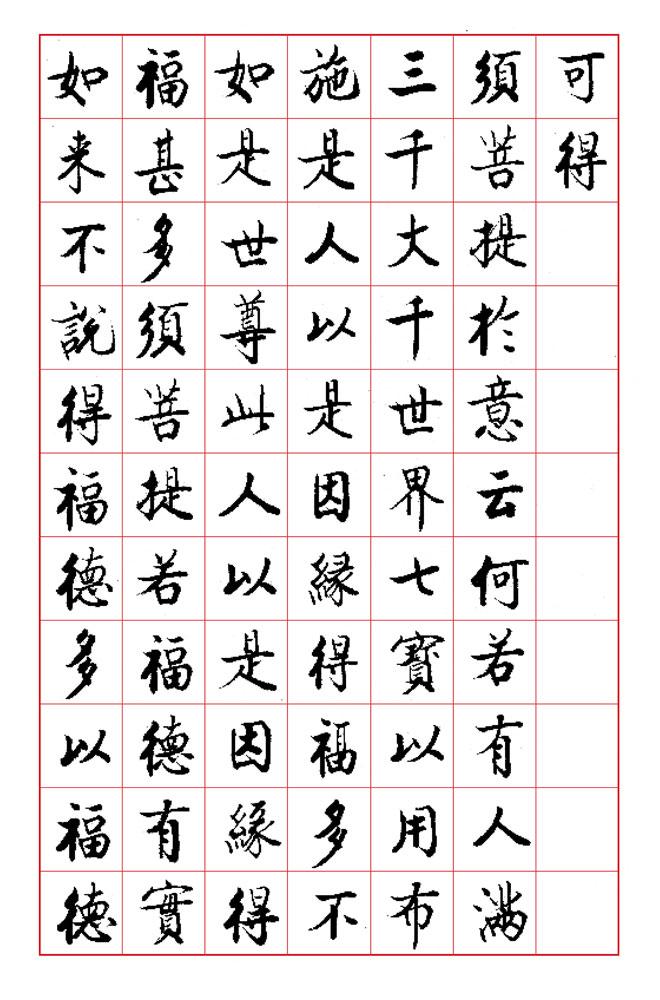 可得
須菩提於意云何若有人滿
三千大千世界七寶以用布
施是人以是因緣得福多不
如是世尊此人以是因緣得
福甚多須菩提若福德有實
如来不說得福德多以福德